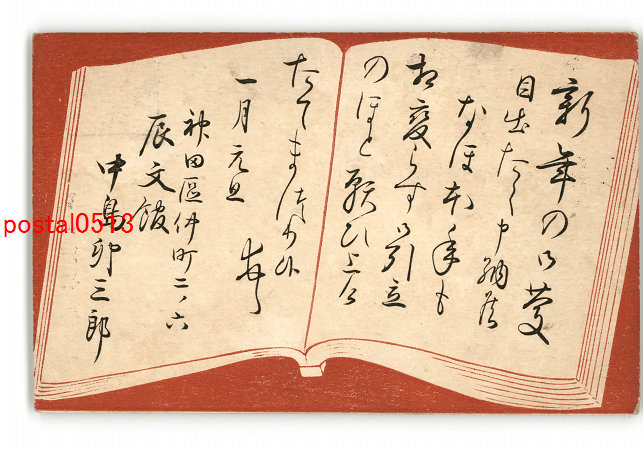 新年の御慶
目出たく申納候
なほ本年も
相変らず御引立
のほど願ひ上げ
たてまつり候
一月元旦
神田區仲町二ノ六
辰文館
中島卯三郎
postal0513